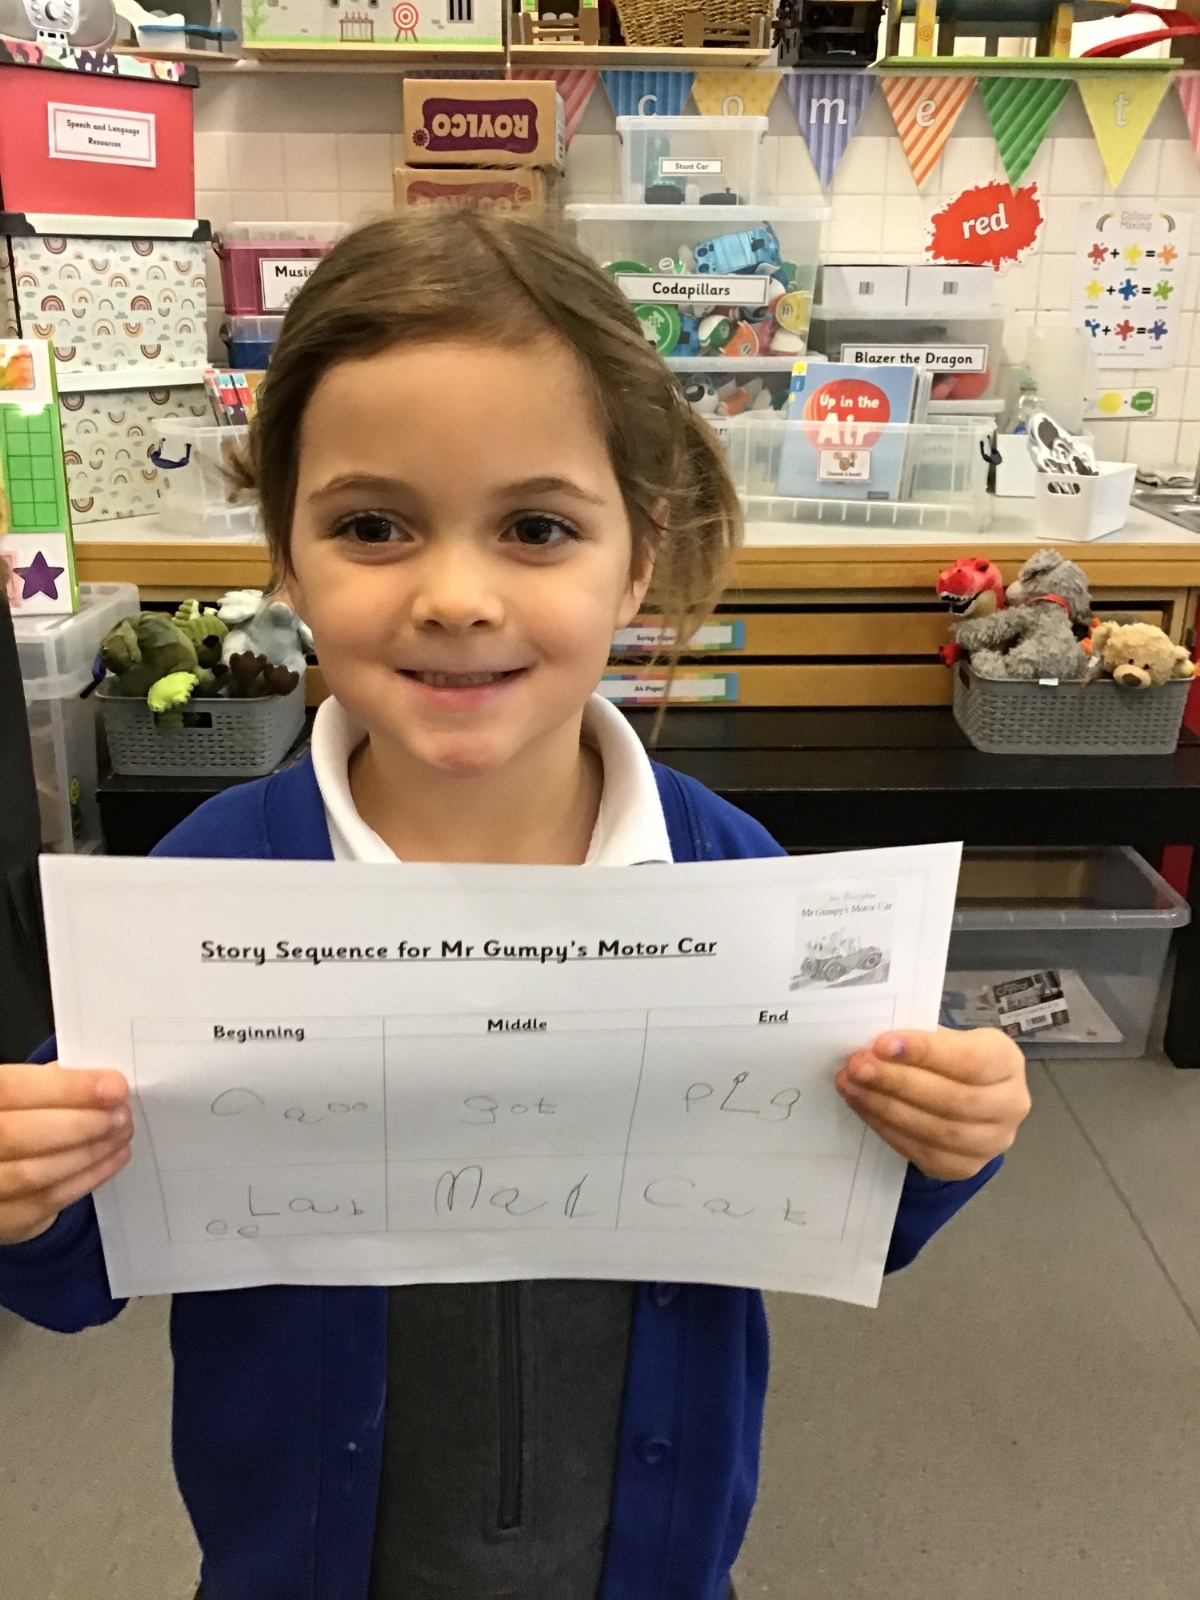 come t
Speech and Language
Resources
ROYLCO
Stunt Car
red
Colour
Mixing
Music
Codapillars
Blazer the Dragon
Up in the
Air
Scrap Paper
A4 Paper
Mr Gumpy's Motor Car
Story Sequence for Mr Gumpy's Motor Car
Beginning Middle End
got pig
Cat